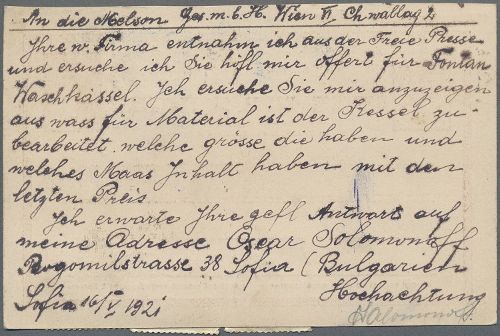 An die Melson Ges. m. b. H. Wien VI, Chwallag 2
Ihre w. Firma entnahm ich aus der Freie Presse
und ersuche ich Sie höfl mir offert für Fontan
Waschkässel. Ich ersuche Sie mir anzuzeigen
aus wass für Material ist der Kessel zu-
bearbeitet, welche grösse die haben und
welches Maas Inhalt haben mit den
letzten Preis.
Ich erwarte Ihre gefl Antwort auf
meine Adresse Oscar Solomonoff
Bogomilstrasse 38 Sofia (Bulgarien
Sofia 16/V 1921 Hochachtung